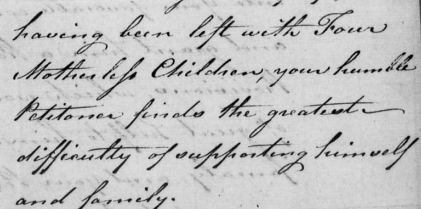 having been left with Four
Motherless Children, your humble
Petitoner finds the greatest
difficulty of supporting himself
and family.